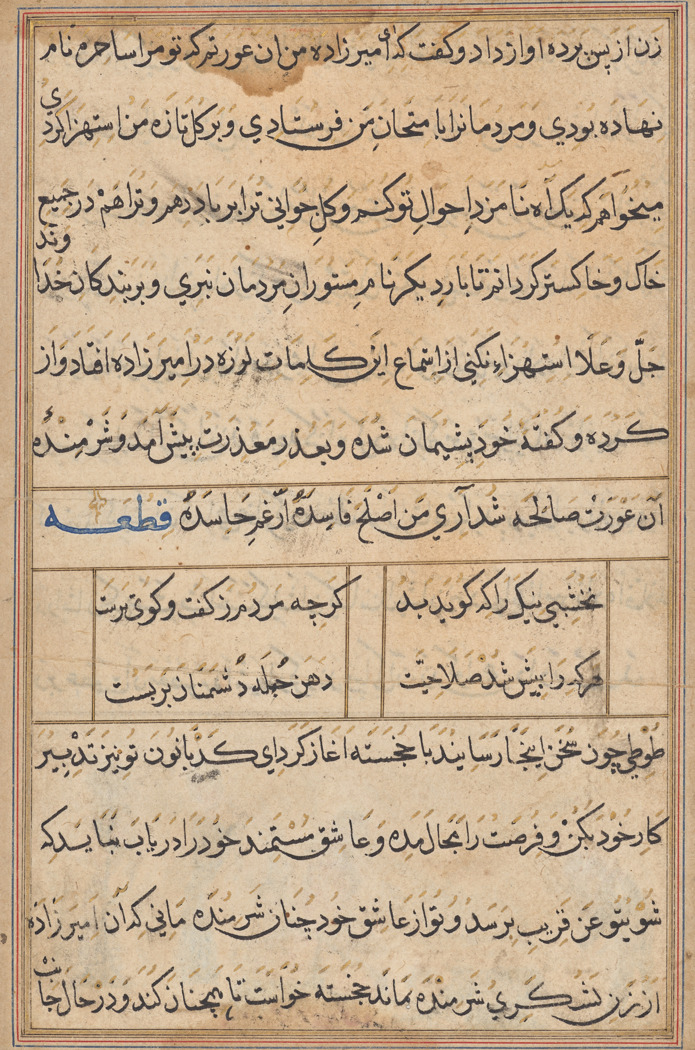 زن از پس پرده اواز داد و کفت که ای امیرزاده من ان عورتم که تو مرا ساحره نام
نهاده بودی و مردمانرا با متحان من فرستادی و بر کل تازه من استهزا کردی
میخواهم که یک آه نامزد احوال تو کنم و کل جوانی ترا بر باد دهم و ترا هم در جمیع
خاک و خاکستر کردانم تا بار دیکر نام مستوران مردمان نبری و بر بندکان خداوند
جلّ و علا استهزاء نکنی از استماع این کلمات لرزه در امیرزاده افتاد و از
کرده و کفته خود پشیمان شده و بعذر معذرت پیش آمد و شرمندهٔ
آن عورت صالحه شد آری من اصلح فاسده ارغم حاسده قطعه
نخشبی نیک را که کوید بد کرچه مردم ز کفت و کوی برست
هرکه را بیش شد صلاحیّت دهن جمله دشمنان بربست
طوطی چون سخن اینجا رسانید با خجسته اغاز کرد ای کدبانون تو نیز تدبیر
کار خود بکن و فرصت را مجال مده و عاشق مستمند خود را دریاب نباید که
شوی تو عن قریب برسد و تو از عاشق خود چنان شرمنده مانی که آن امیرزاده
از زن لشکری شرمنده ماند خجسته خواست تا همچنان کند و در حال جانب